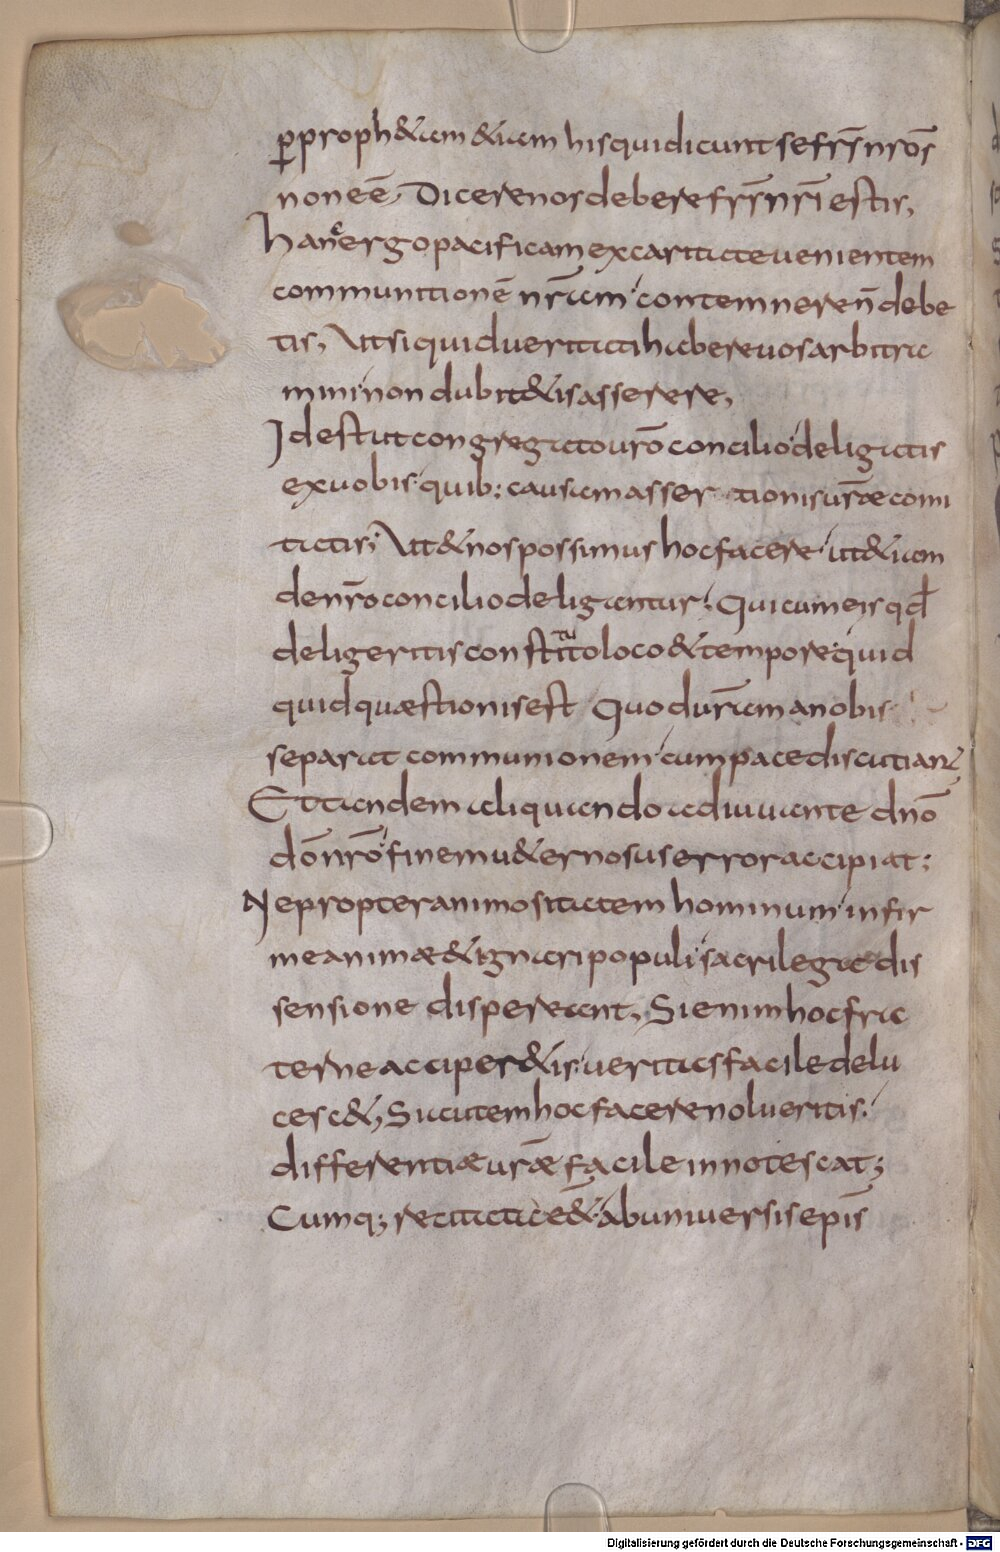 p̱proph&am &iam his qui dicunt se fr̄s nr̄os
non eē, Dicere nos debere fr̄s nr̄i estis,
Hancergo pacificam ex caritate uenientem
communitionē nr̄am contemnere n̄ debe
tis, Ut si quid ueritati habere uos arbitra
mini non dubit&is asserere,
Id est ut congregato ur̄o concilio deligatis
ex uobis quib; causam asser tionis ur̄æ comi
tatis; Ut & nos possimus hoc facere ut &iam
de nr̄o concilio deligantur; Qui cum eis qđ
deligeritis constituto loco & tempore quid
quid quæstionis est Quod ur̄am a nobis
separat communionem cum pace discutiant
Et tandem aliquando adiuuante dn̄o
dō nr̄o finem u&ernosus error accipiat;
Ne propter animositatem hominum infir
me animæ & ignari populi sacrilega dis
sensione dispereant, Si enim hoc fra
terne acciper&is ueritas facile delu
cesc&, Si autem hoc facere nolueritis;
differentiæ ur̄æ facile innotescat;
Cumq; recitata eē& ab uniuersis ep̄is
Digitalisierung gefördert durch die Deutsche Forschungsgemeinschaft - DFG